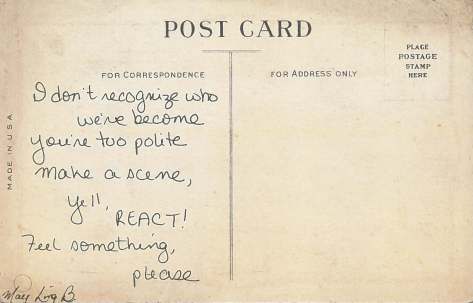 POST CARD
PLACE
POSTAGE
STAMP
HERE
FOR CORRESPONDENCE
FOR ADDRESS ONLY
MADE IN U.S.A.
I don't recognize who
we've become
You're too polite
Make a scene,
Yell,
REACT!
Feel something,
please
B.